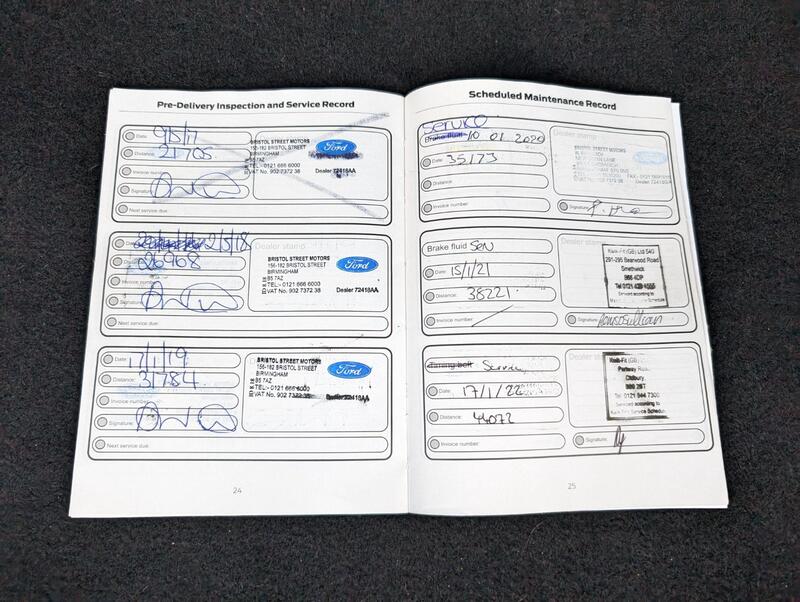 Pre-Delivery Inspection and Service Record
Date: 9/5/17
Distance: 21705
Invoice number:
Signature:
Next service due:
BRISTOL STREET MOTORS
156-182 BRISTOL STREET
BIRMINGHAM
B5 7AZ
TEL:- 0121 666 6000
VAT No. 902 7372 38
Ford
Dealer 72418AA
2/5/18
26968
Invoice number:
Signature:
Next service due:
Dealer stamp
BRISTOL STREET MOTORS
156-182 BRISTOL STREET
BIRMINGHAM
B5 7AZ
TEL:- 0121 666 6000
VAT No. 902 7372 38
Ford
Dealer 72418AA
Date: 17/1/19
Distance: 31784
Invoice number:
Signature:
Next service due:
BRISTOL STREET MOTORS
156-182 BRISTOL STREET
BIRMINGHAM
B5 7AZ
TEL:- 0121 666 6000
VAT No. 902 7372 38
Ford
Dealer 72418AA
24
Scheduled Maintenance Record
Service
Brake fluid 10 01 2020
Date: 35173
Distance:
Invoice number:
Dealer stamp
BRISTOL STREET MOTORS
Ford
Signature:
Brake fluid Serv
Date: 15/1/21
Distance: 38221
Invoice number:
Dealer stamp
Kwik-Fit (GB) Ltd 540
291-295 Bearwood Road
Smethwick
B66 4DP
Tel 0121 429 4555
Serviced according to
Signature:
Timing belt Service
Date: 17/1/22
Distance: 44072
Invoice number:
Dealer stamp
Kwik-Fit (GB)
Oldbury
Tel 0121 544 7300
Serviced according to
Kwik-Fit Service Schedule
Signature:
25